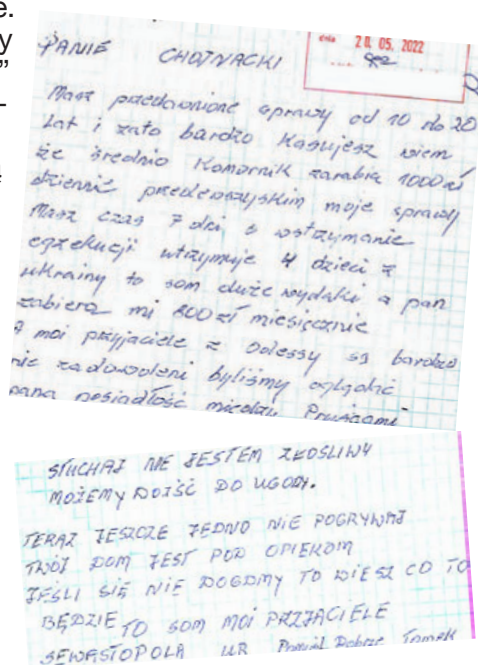 e.
y
”
-
ą
20. 05. 2022
PANIE CHOJNACKI
Masz przedawnione sprawy od 10 do 20
Lat i zato bardzo Kasujesz wiem
że średnio Komornik zarabia 1000 zł
dziennie przedewszyskim moje sprawy
Masz czas 7 dni o wstrzymanie
egzekucji utrzymuje 4 dzieci z
ukrainy to som duże wydatki a pan
zabiera mi 800 zł miesięcznie
A moi przyjaciele z Odessy są bardzo
nie zadowoleni byliśmy oglądać
pana posiadłość miedzy
SŁUCHAJ NIE JESTEM ZŁOSLIWY
MOŻEMY DOJŚĆ DO UGODY.
TERAZ JESZCZE JEDNO NIE POGRYWAJ
TWÓJ DOM JEST POD OPIEKOM
JEŚLI SIĘ NIE DOGDMY TO WIESZ CO TO
BĘDZIE TO SOM MOI PRZYJACIELE
SEWASTOPOLA UR Dobrze Tomek